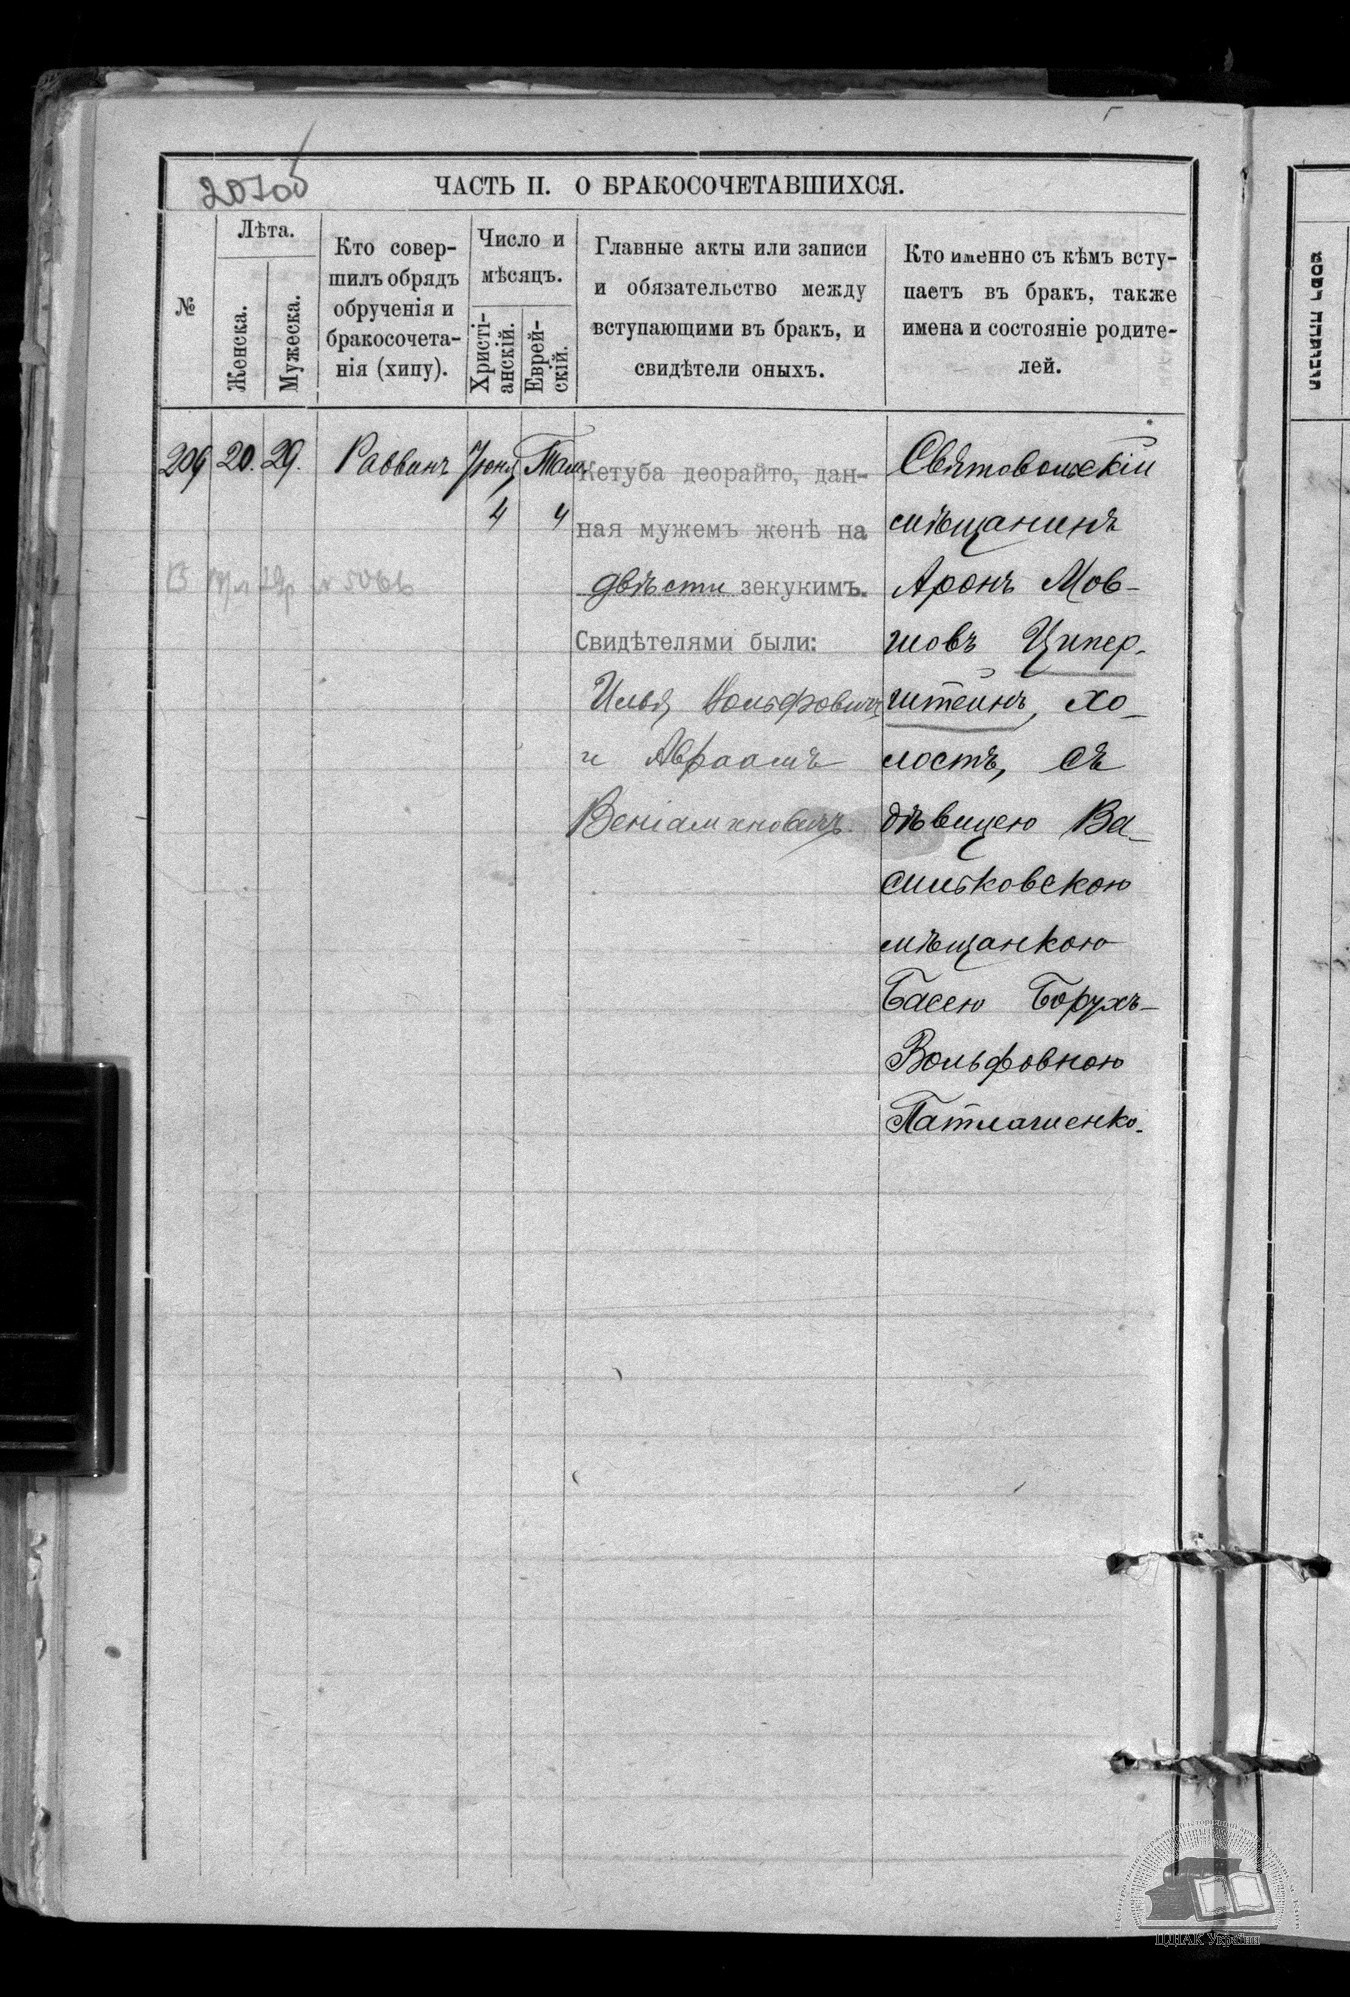 207об
ЧАСТЬ II. О БРАКОСОЧЕТАВШИХСЯ.
№
Лѣта.
Женска.
Мужеска.
Кто совер-
шилъ обрядъ
обрученія и
бракосочета-
нія (хипу).
Число и
мѣсяцъ.
Христі-
анскій.
Еврей-
скій.
Главные акты или записи
и обязательство между
вступающими въ бракъ, и
свидѣтели оныхъ.
Кто именно съ кѣмъ всту-
паетъ въ бракъ, также
имена и состояніе родите-
лей.
209
20.
29.
Раввинъ
Іюня
4
Там.
4
Кетуба деорайто, дан-
ная мужемъ женѣ на
двѣсти зекукимъ.
Свидѣтелями были:
Илья Вольфовичъ
и Авраамъ
Веніаминовичъ.
Святовольскій
мѣщанинъ
Аронъ Мов-
шовъ Ципер-
штейнъ, хо-
лостъ, съ
дѣвицею Ва-
сильковскою
мѣщанкою
Басею Борухъ-
Вольфовною
Патлашенко.
ЦДІАК України